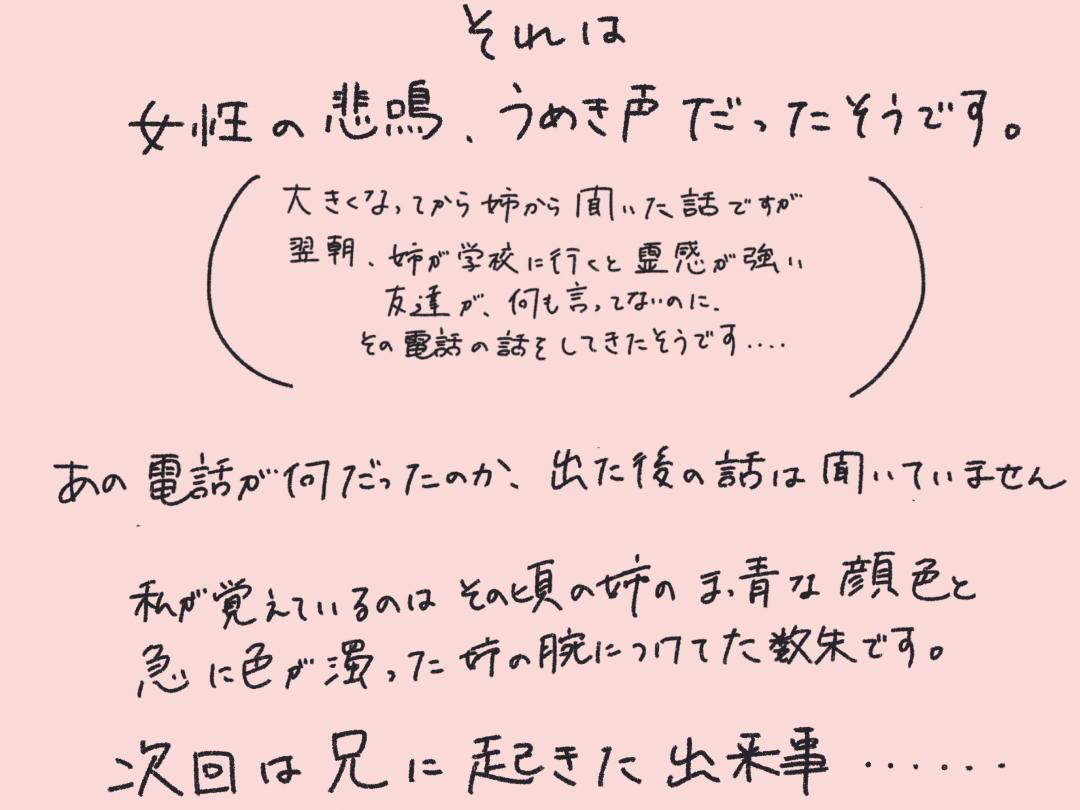 それは
女性の悲鳴、うめき声だったそうです。
大きくなってから姉から聞いた話ですが
翌朝、姉が学校に行くと霊感が強い
友達が、何も言ってないのに、
その電話の話をしてきたそうです‥‥
あの電話が何だったのか、出た後の話は聞いていません
私が覚えているのはその頃の姉のまっ青な顔色と
急に色が濁った姉の腕につけてた数朱です。
次回は兄に起きた出来事‥‥‥